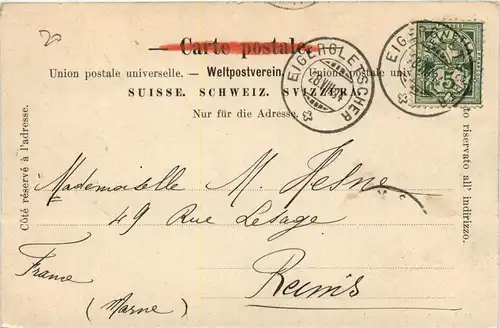 Carte postale.
Union postale universelle. — Weltpostverein. Unione postale universale
SUISSE. SCHWEIZ. SVIZZERA.
Nur für die Adresse.
Côté réservé à l'adresse.
riservato all' indirizzo.
EIGERGLETSCHER
28.VIII.04
EIGERGLETSCHER
5
Mademoiselle M. Hesne
49 Rue Lesage
Reims
France
(Marne)